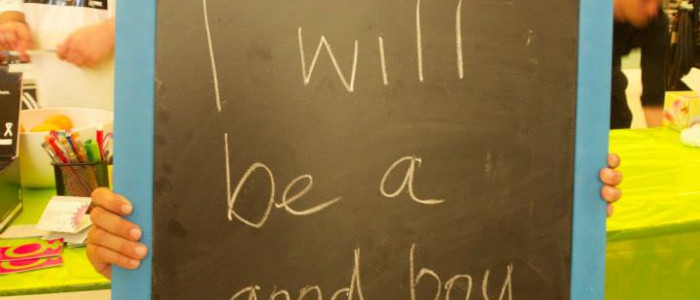 I will
be a
good boy